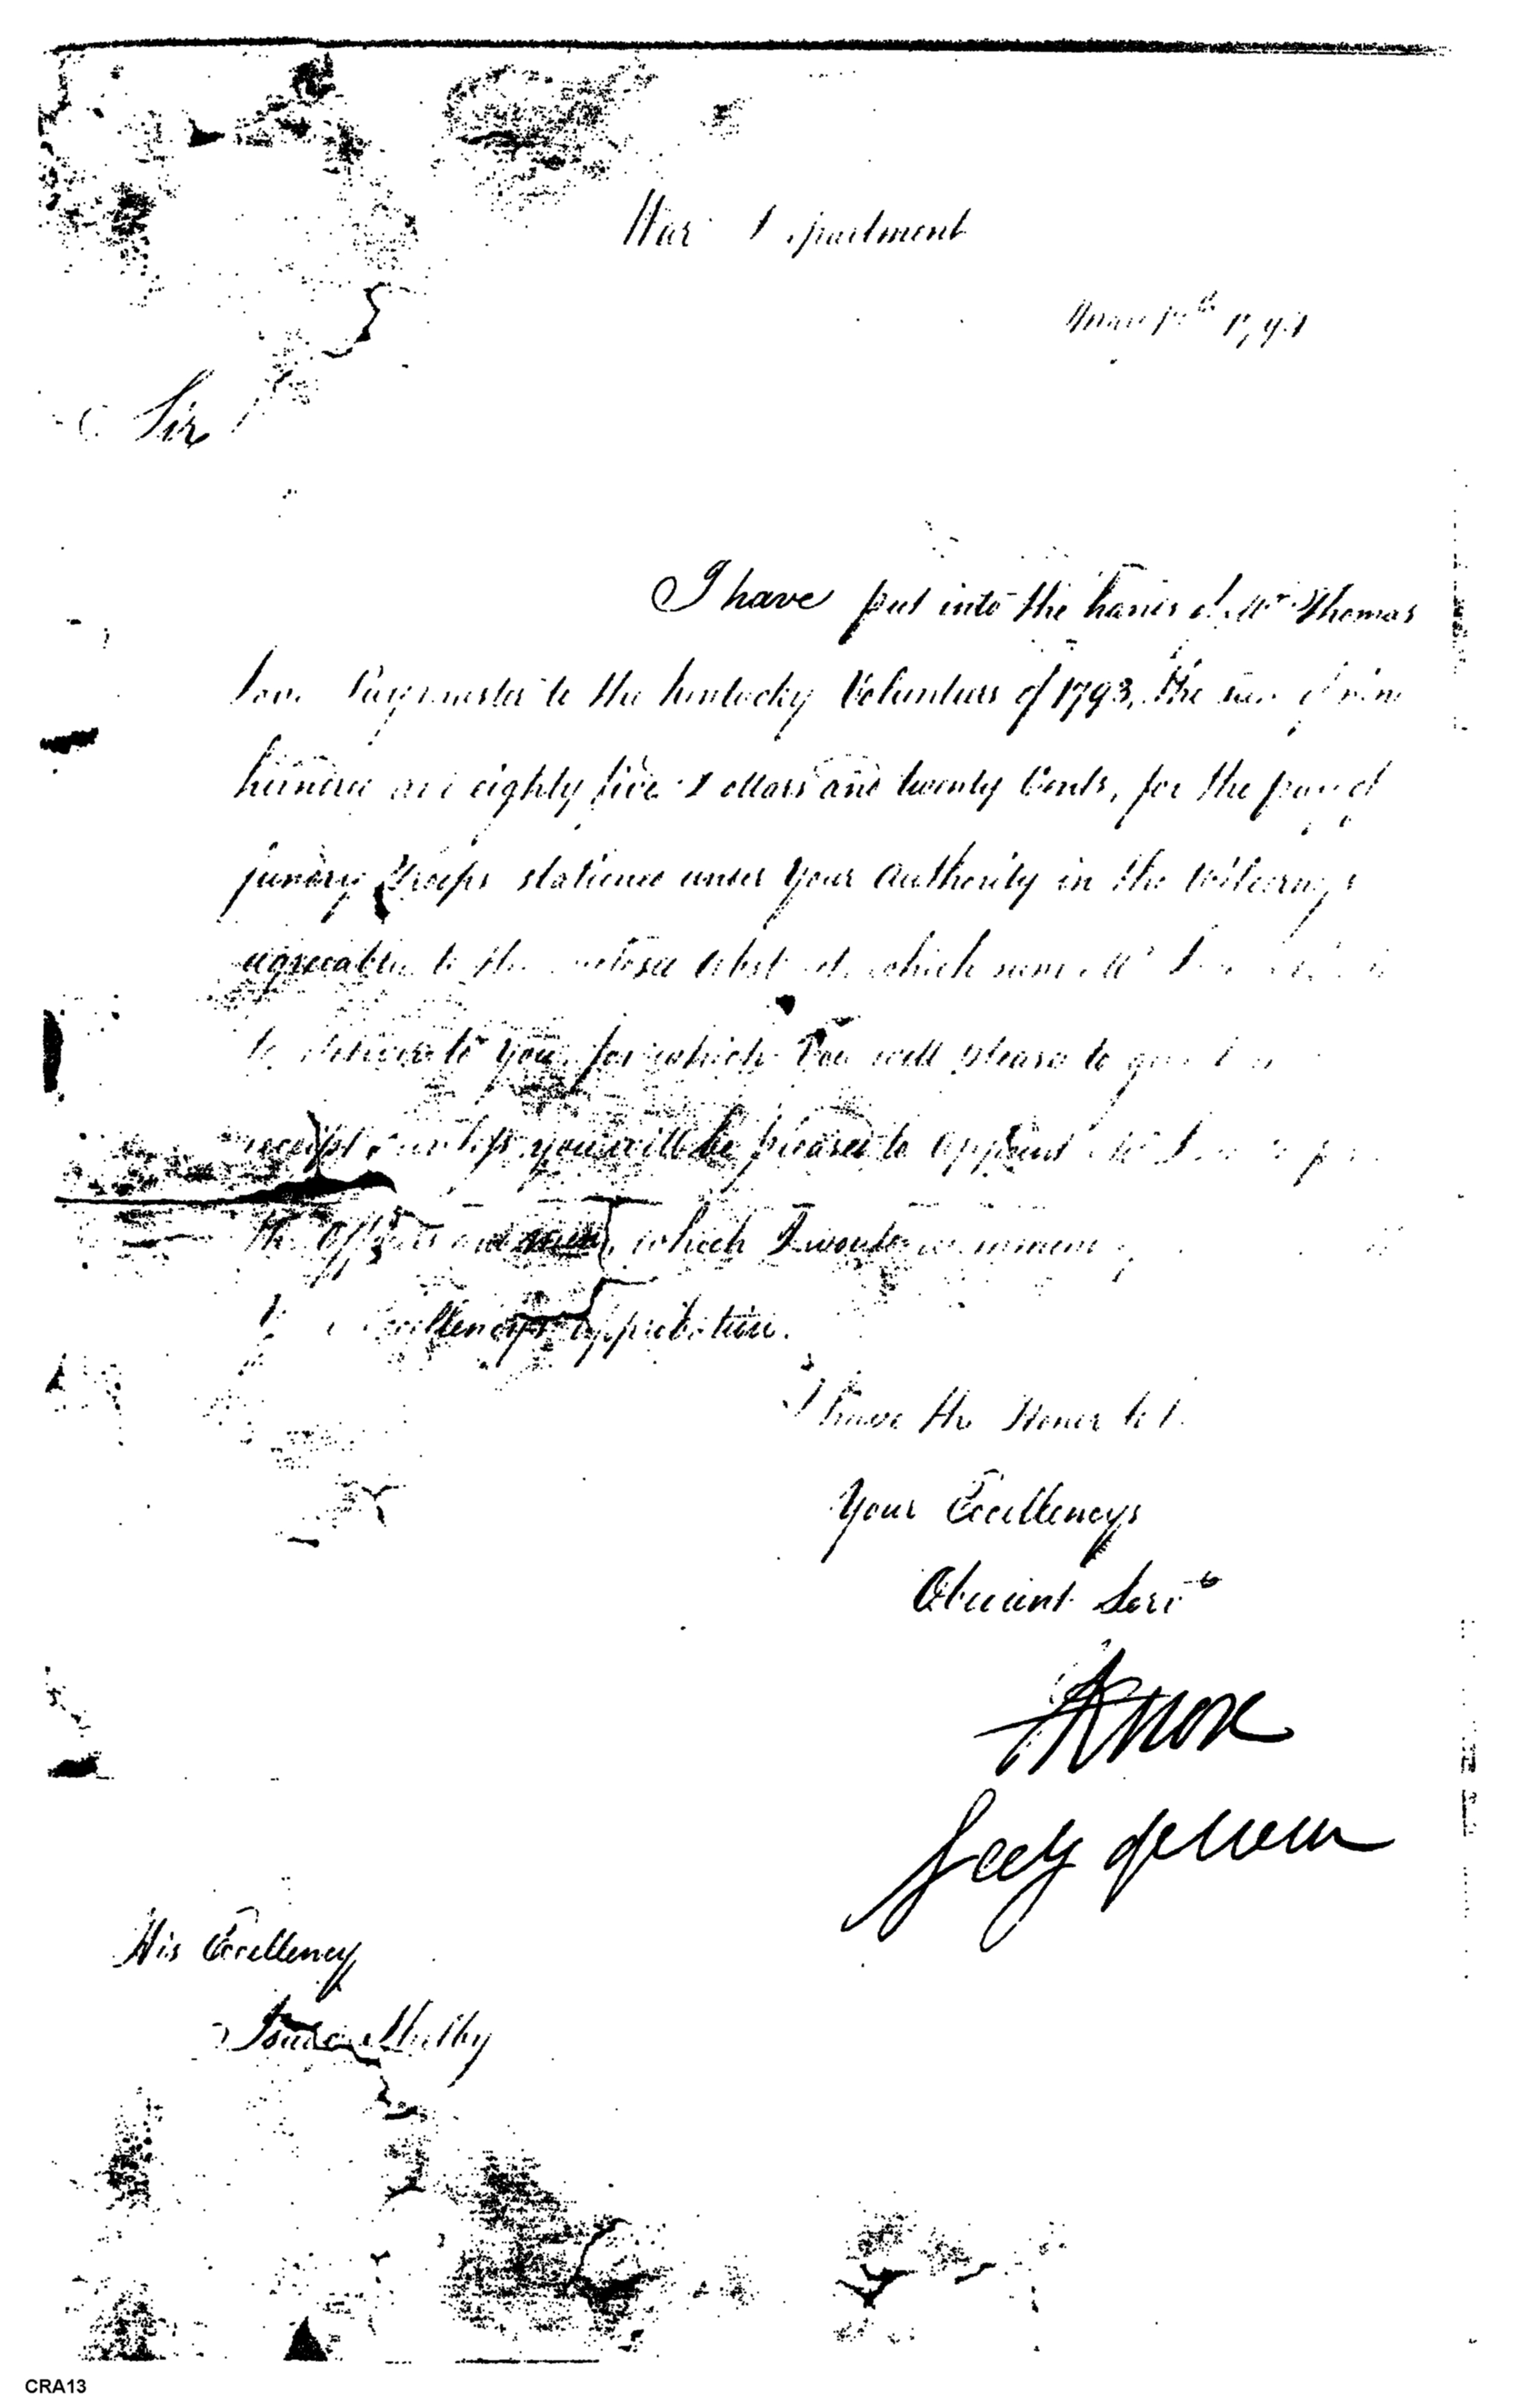 War Department
1794
Sir
I have put into the hands of Mr. Thomas
Paymaster to the Kentucky Volunteers of 1793, the sum of nine
hundred and eighty five Dollars and twenty Cents, for the pay of
sundry Troops stationed under your Authority in the Wilderness
agreeable to the enclosed Abstract, which sum Mr.
to deliver to you, for which You will please to give
receipt, perhaps you will be pleased to appoint Mr. to pay
the Officers and men, which I would recommend
Excellency's approbation.
I have the Honor to be
Your Excellencys
Obedient Servt
HKnox
Secy of War
His Excellency
Isaac Shelby
CRA13